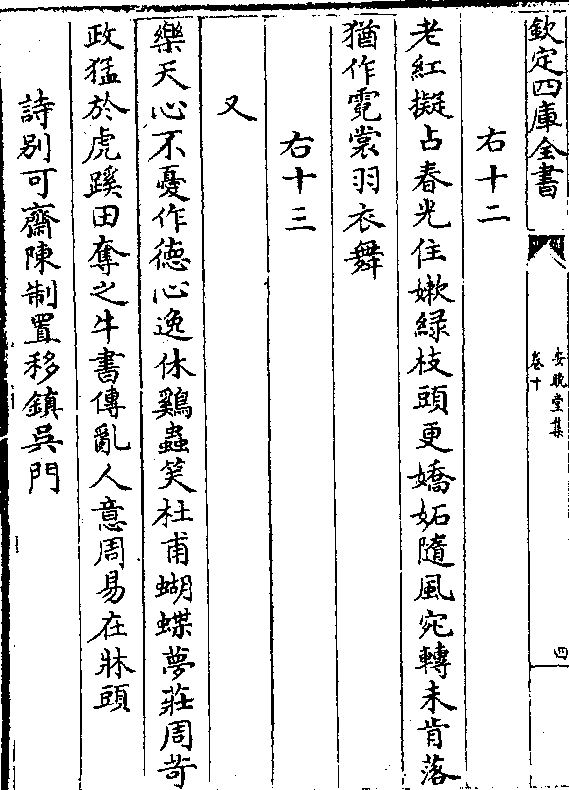 欽定四庫全書
安晚堂集
卷十
四
右十二
老紅擬占春光住嫰緑枝頭更嬌妬隨風宛轉未肯落
猶作霓裳羽衣舞
右十三
又
樂天心不憂作德心逸休鷄蟲笑杜甫蝴蝶夢莊周苛
政猛於虎蹊田奪之牛書傳亂人意周易在牀頭
詩别可齋陳制置移鎮吳門